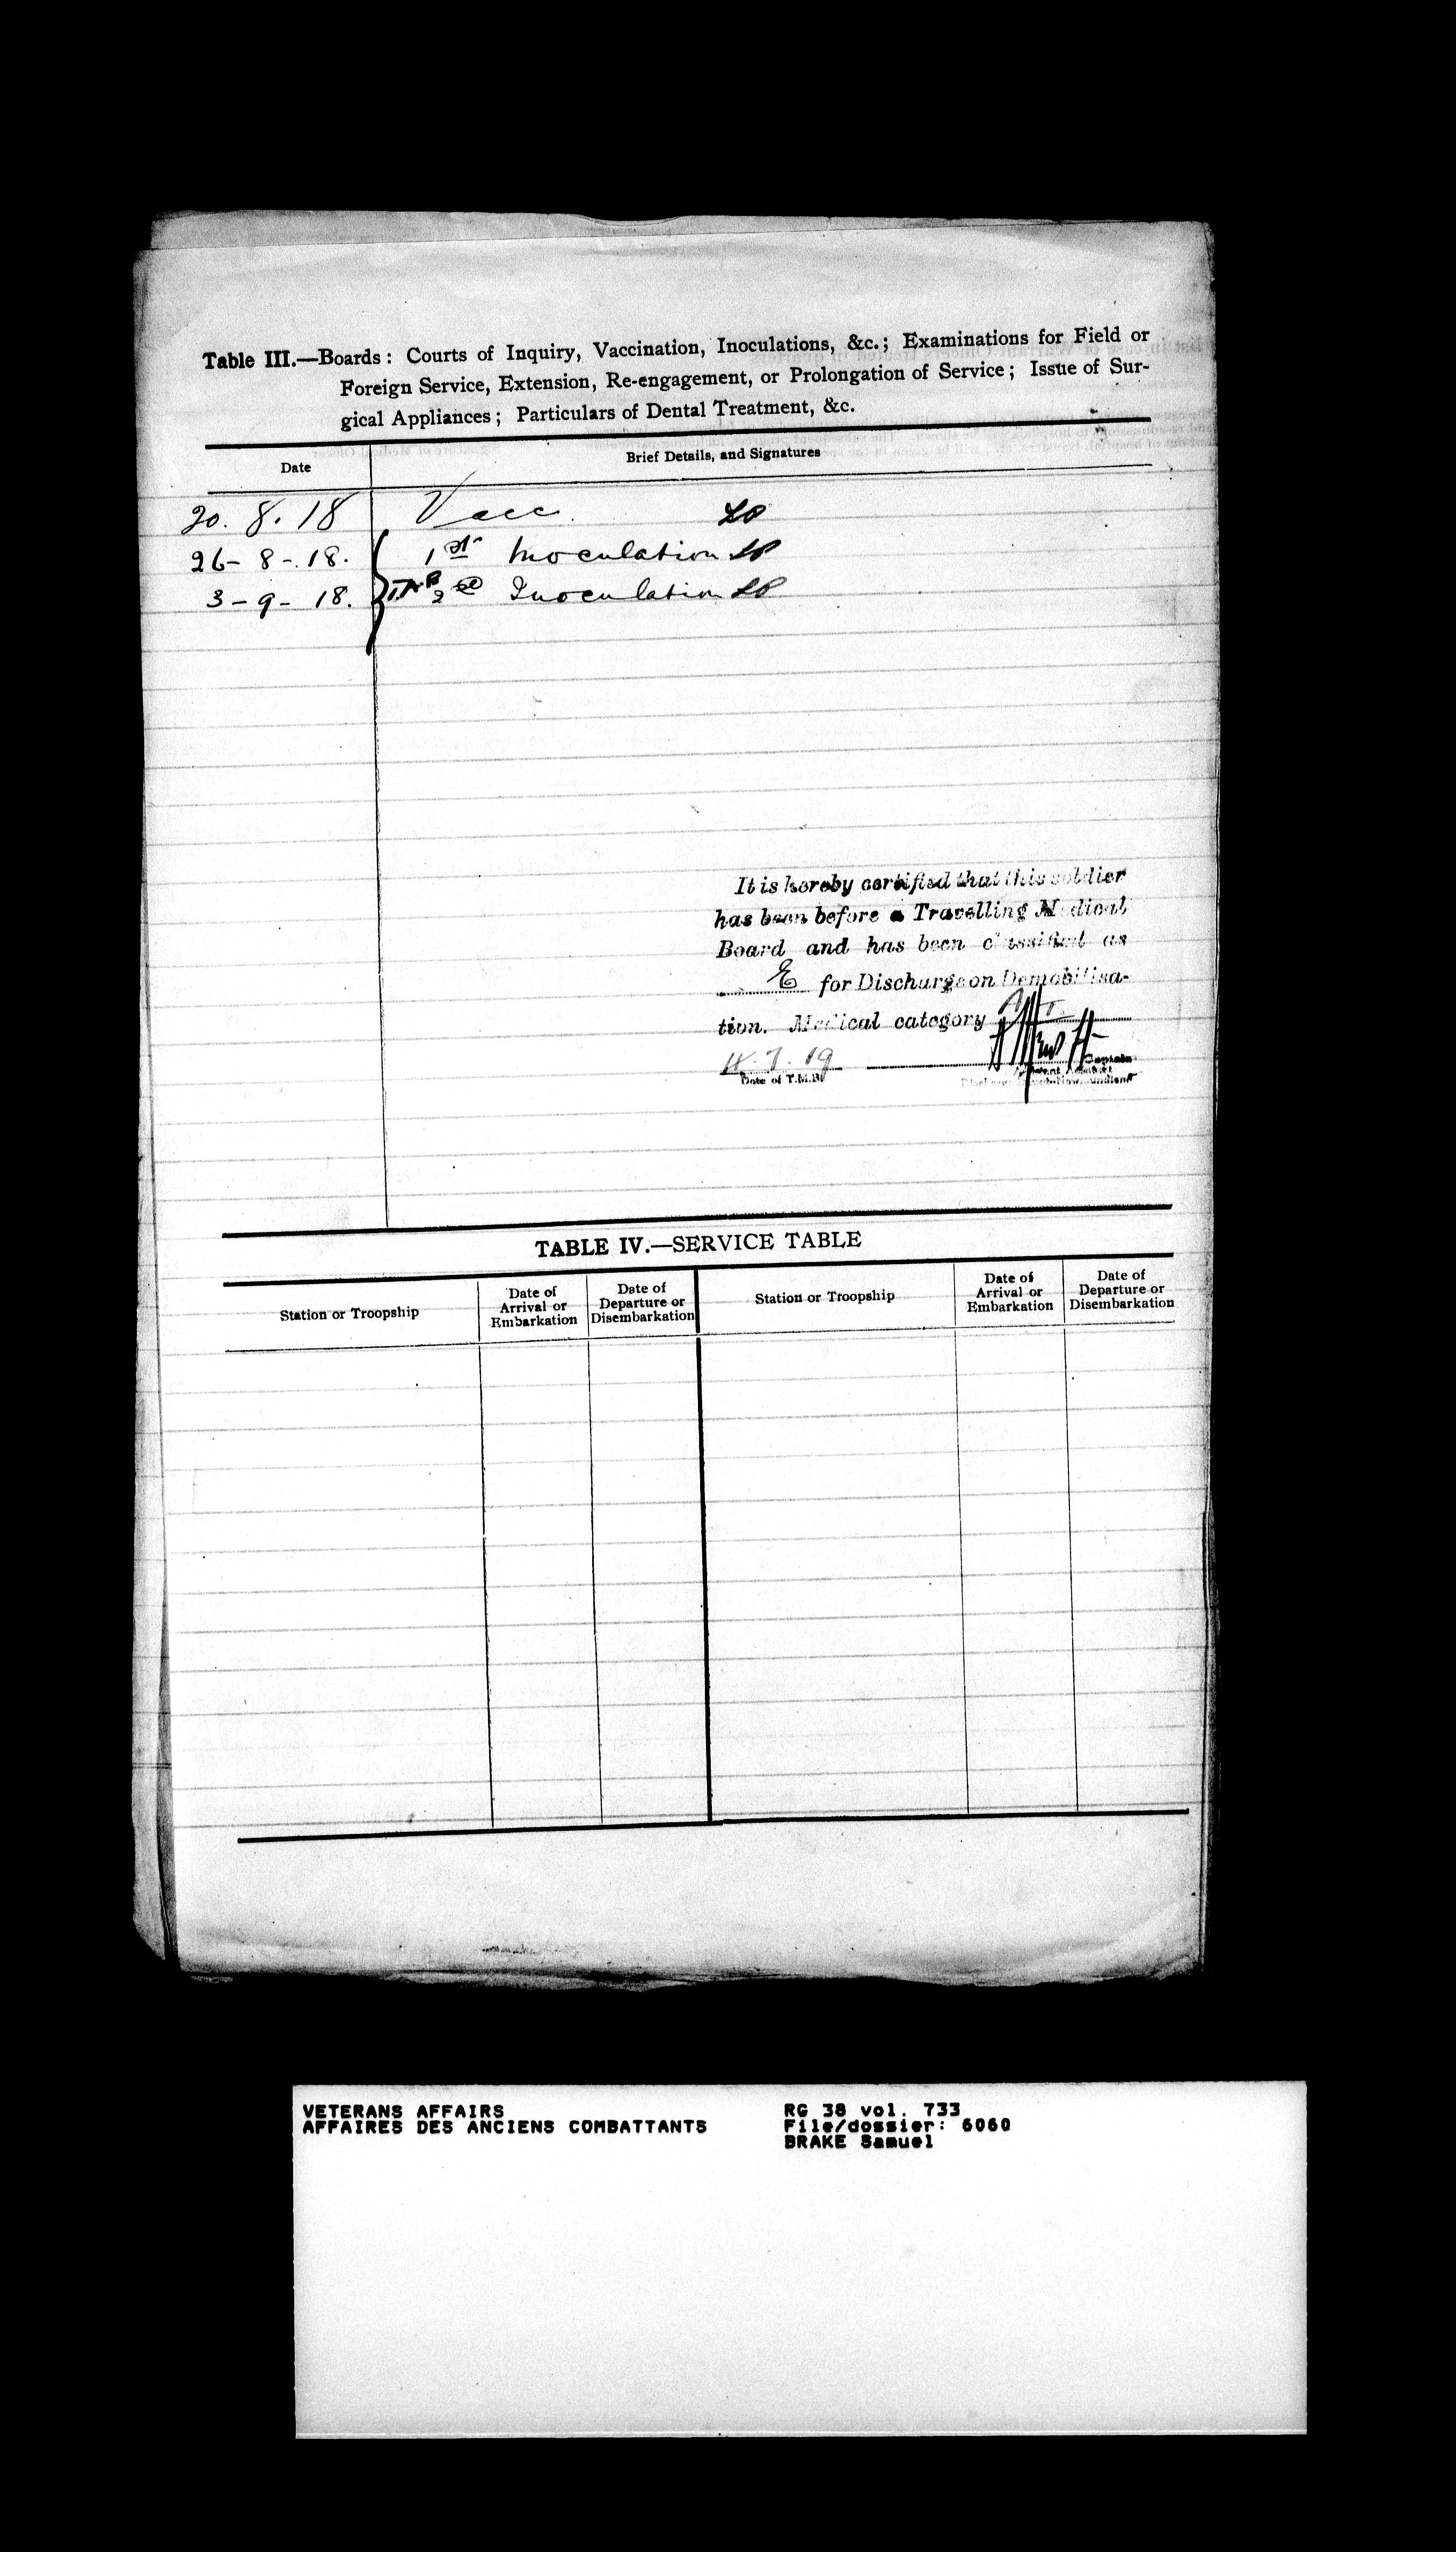 Table III.—Boards: Courts of Inquiry, Vaccination, Inoculations, &c.; Examinations for Field or
Foreign Service, Extension, Re-engagement, or Prolongation of Service; Issue of Sur-
gical Appliances; Particulars of Dental Treatment, &c.
Date Brief Details, and Signatures
20. 8. 18 Vacc.
26-8-18. 1st Inoculation
3-9-18. 2nd Inoculation
It is hereby certified that this soldier
has been before a Travelling Medical
Board and has been classified as
E for Discharge on Demobilisa-
tion. Medical category
Captain
Date of T.M.B.
TABLE IV.—SERVICE TABLE
Station or Troopship Date of Arrival or Embarkation Date of Departure or Disembarkation Station or Troopship Date of Arrival or Embarkation Date of Departure or Disembarkation
VETERANS AFFAIRS RG 38 vol. 733
AFFAIRES DES ANCIENS COMBATTANTS File/dossier: 6060
BRAKE Samuel